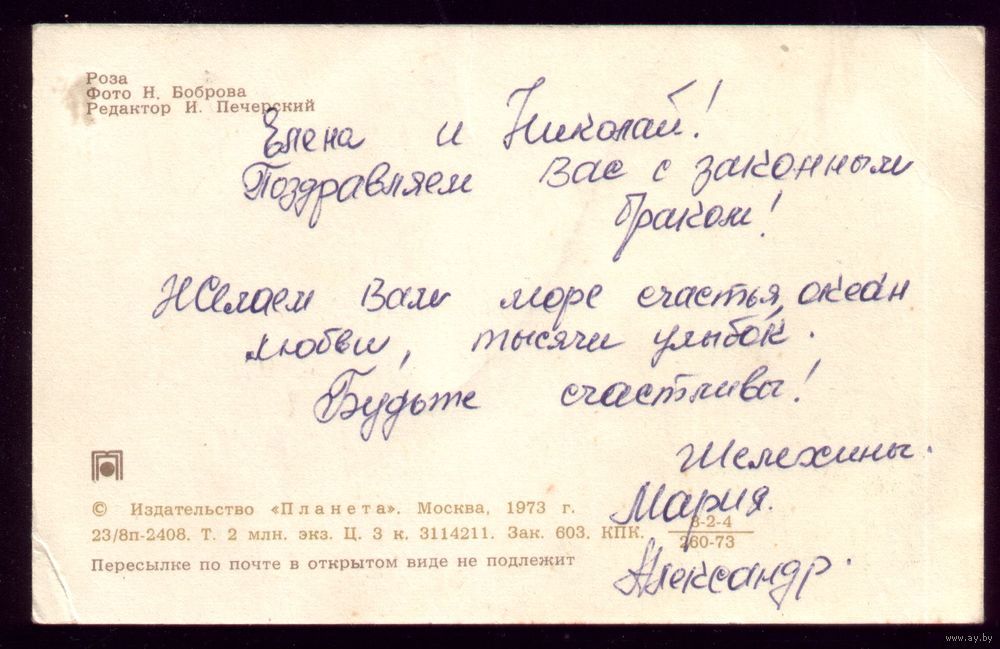 Роза
Фото Н. Боброва
Редактор И. Печерский
Елена и Николай!
Поздравляем Вас с законным
браком!
Желаем Вам море счастья, океан
любви, тысячи улыбок.
Будьте счастливы!
Шелехины.
Мария.
Александр.
© Издательство «Планета». Москва, 1973 г.
23/8п-2408. Т. 2 млн. экз. Ц. 3 к. 3114211. Зак. 603. КПК. 8-2-4
260-73
Пересылке по почте в открытом виде не подлежит
www.ay.by